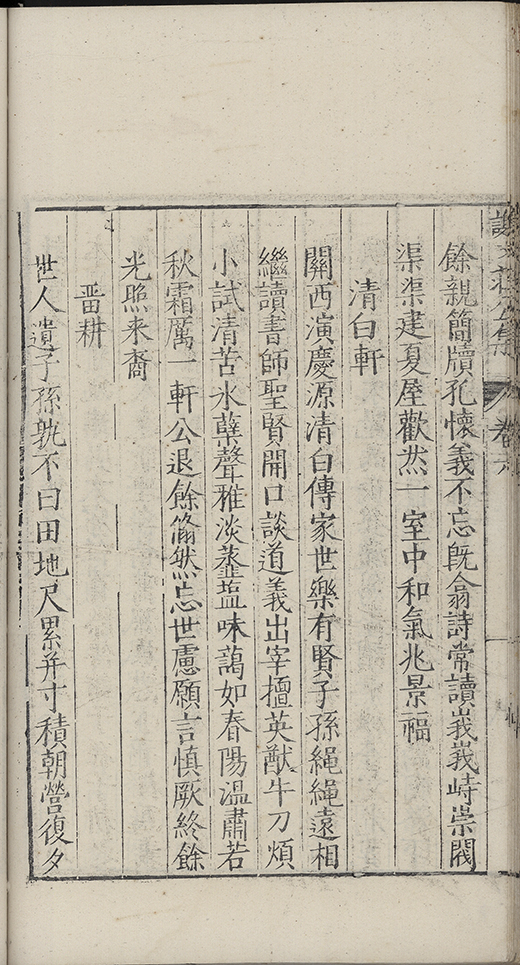 餘親簡牘孔懷義不忘旣翕詩常讀峩峩峙崇閥
渠渠建夏屋歡然一室中和氣兆景福
清白軒
關西演慶源清白傳家世樂有賢子孫繩繩遠相
繼讀書師聖賢開口談道義出宰擅英猷牛刀煩
小試清苦氷蘗聲雅淡虀盬味藹如春陽溫肅若
秋霜厲一軒公退餘翛然忘世慮願言慎厥終餘
光照来裔
畱耕
世人遺子孫孰不曰田地尺累并寸積朝營復夕